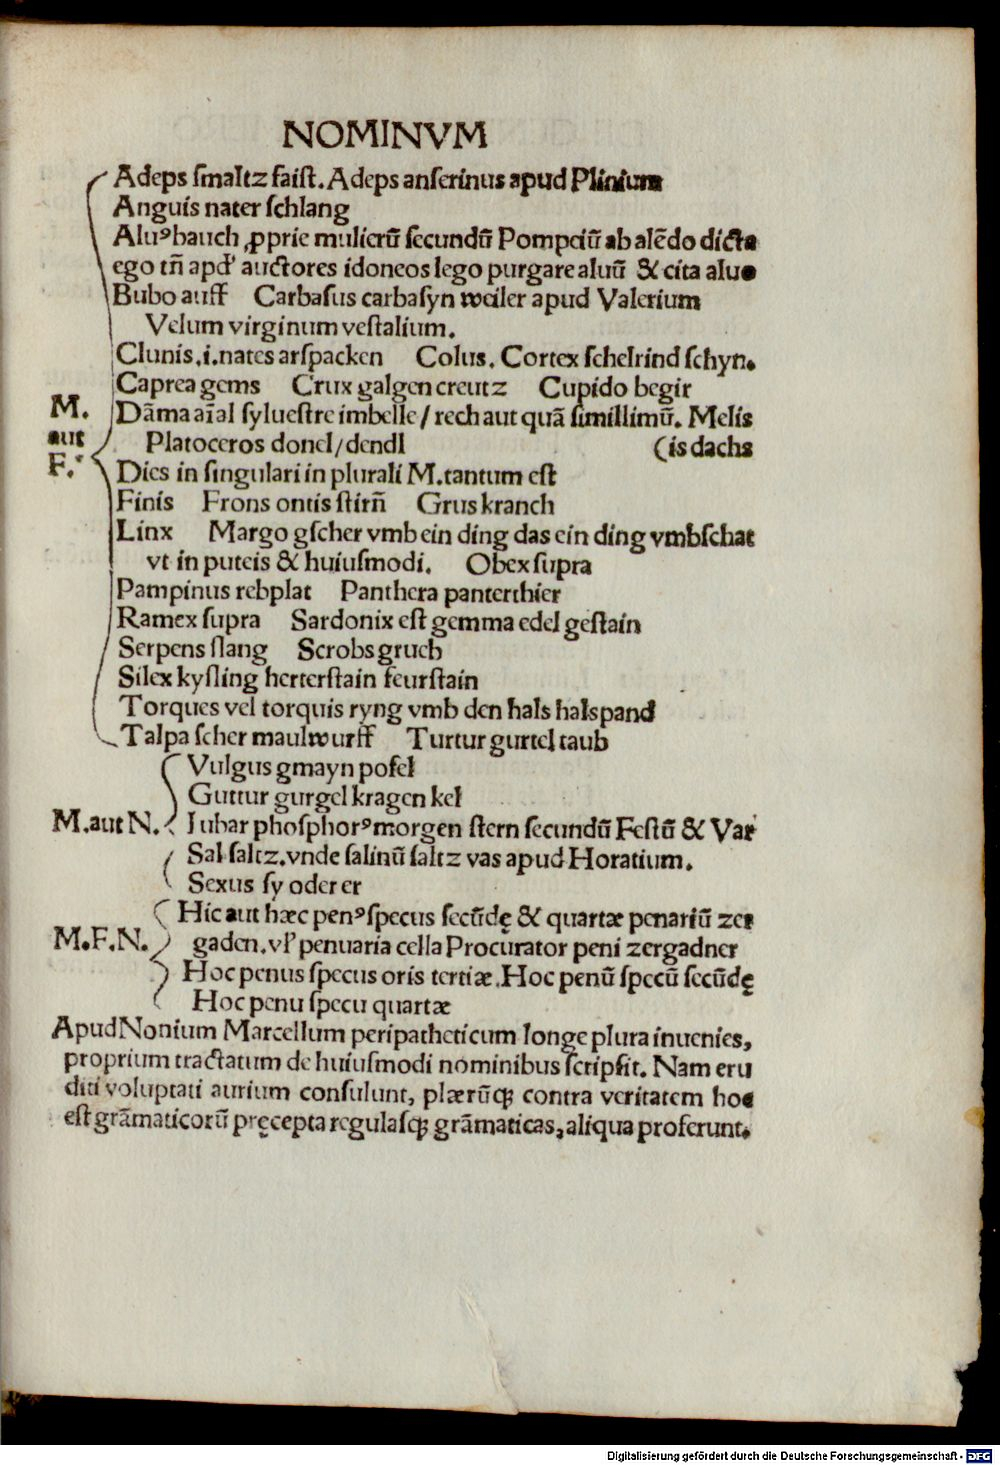 NOMINVM
Adeps ſmaltz faiſt. Adeps anſerinus apud Plinium
Anguis nater ſchlang
Aluꝰ bauch ꝓprie mulierū ſecundū Pompeiū ab alēdo dicta
ego tñ apđ auctores idoneos lego purgare aluū & cita aluo
Bubo auff Carbaſus carbaſyn weiler apud Valerium
Velum virginum veſtalium.
Clunis .i. nates arſpacken Colus. Cortex ſchelrind ſchyn.
Caprea gems Crux galgen creutz Cupido begir
M. aut F. Dāma aīal ſylueſtre imbelle / rech aut quā ſimillimū. Melis
Platoceros donel / dendl (is dachs
Dies in ſingulari in plurali M. tantum eſt
Finis Frons ontis ſtirñ Grus kranch
Linx Margo gſcher vmb ein ding das ein ding vmbſchat
vt in puteis & huiuſmodi. Obex ſupra
Pampinus rebplat Panthera panterthier
Ramex ſupra Sardonix eſt gemma edel geſtain
Serpens ſlang Scrobs grueb
Silex kyſling herterſtain feurſtain
Torques vel torquis ryng vmb den hals halspand
Talpa ſcher maulwurff Turtur gurtel taub
Vulgus gmayn pofel
Guttur gurgel kragen kel
M. aut N. Iubar phoſphorꝰ morgen ſtern ſecundū Feſtū & Var
Sal ſaltz. vnde ſalinū ſaltz vas apud Horatium.
Sexus ſy oder er
Hic aut hæc penꝰ ſpecus ſecūdę & quartæ penariū zer
M. F. N. gaden. vl' penuaria cella Procurator peni zergadner
Hoc penus ſpecus oris tertiæ. Hoc penū ſpecū ſecūdę
Hoc penu ſpecu quartæ
Apud Nonium Marcellum peripatheticum longe plura inuenies,
proprium tractatum de huiuſmodi nominibus ſcripſit. Nam eru
diti voluptati aurium conſulunt, plærūqꝫ contra veritatem hoc
eſt grāmaticorū pręcepta regulaſqꝫ grāmaticas, aliqua proferunt.
Digitalisierung gefördert durch die Deutsche Forschungsgemeinschaft - DFG